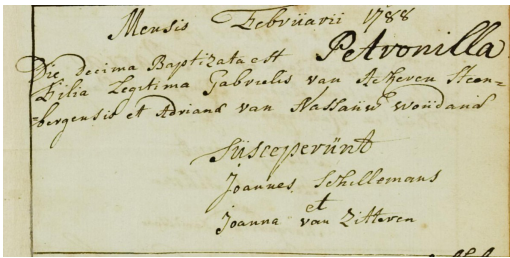 Mensis Februarii 1788
Die decima Baptizata est Petronilla
Filia Legitima Gabrielis van Aetheren Steen=
bergensis et Adrianæ van Nassauw Woudanæ
Susceperünt
Joannes Schillemans
et
Joanna van Zitteren